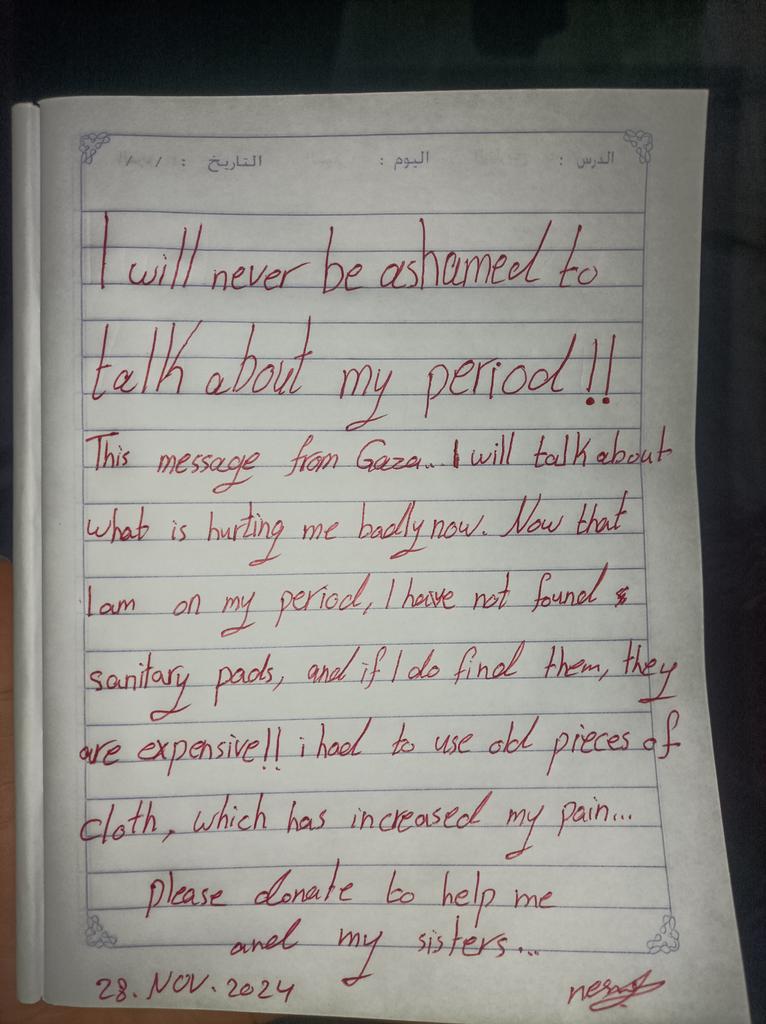 الدرس : اليوم : التاريخ : / /
I will never be ashamed to
talk about my period!!
This message from Gaza... I will talk about
what is hurting me badly now. Now that
I am on my period, I have not found
sanitary pads, and if I do find them, they
are expensive!! i had to use old pieces of
cloth, which has increased my pain...
please donate to help me
and my sisters...
28. NOV. 2024